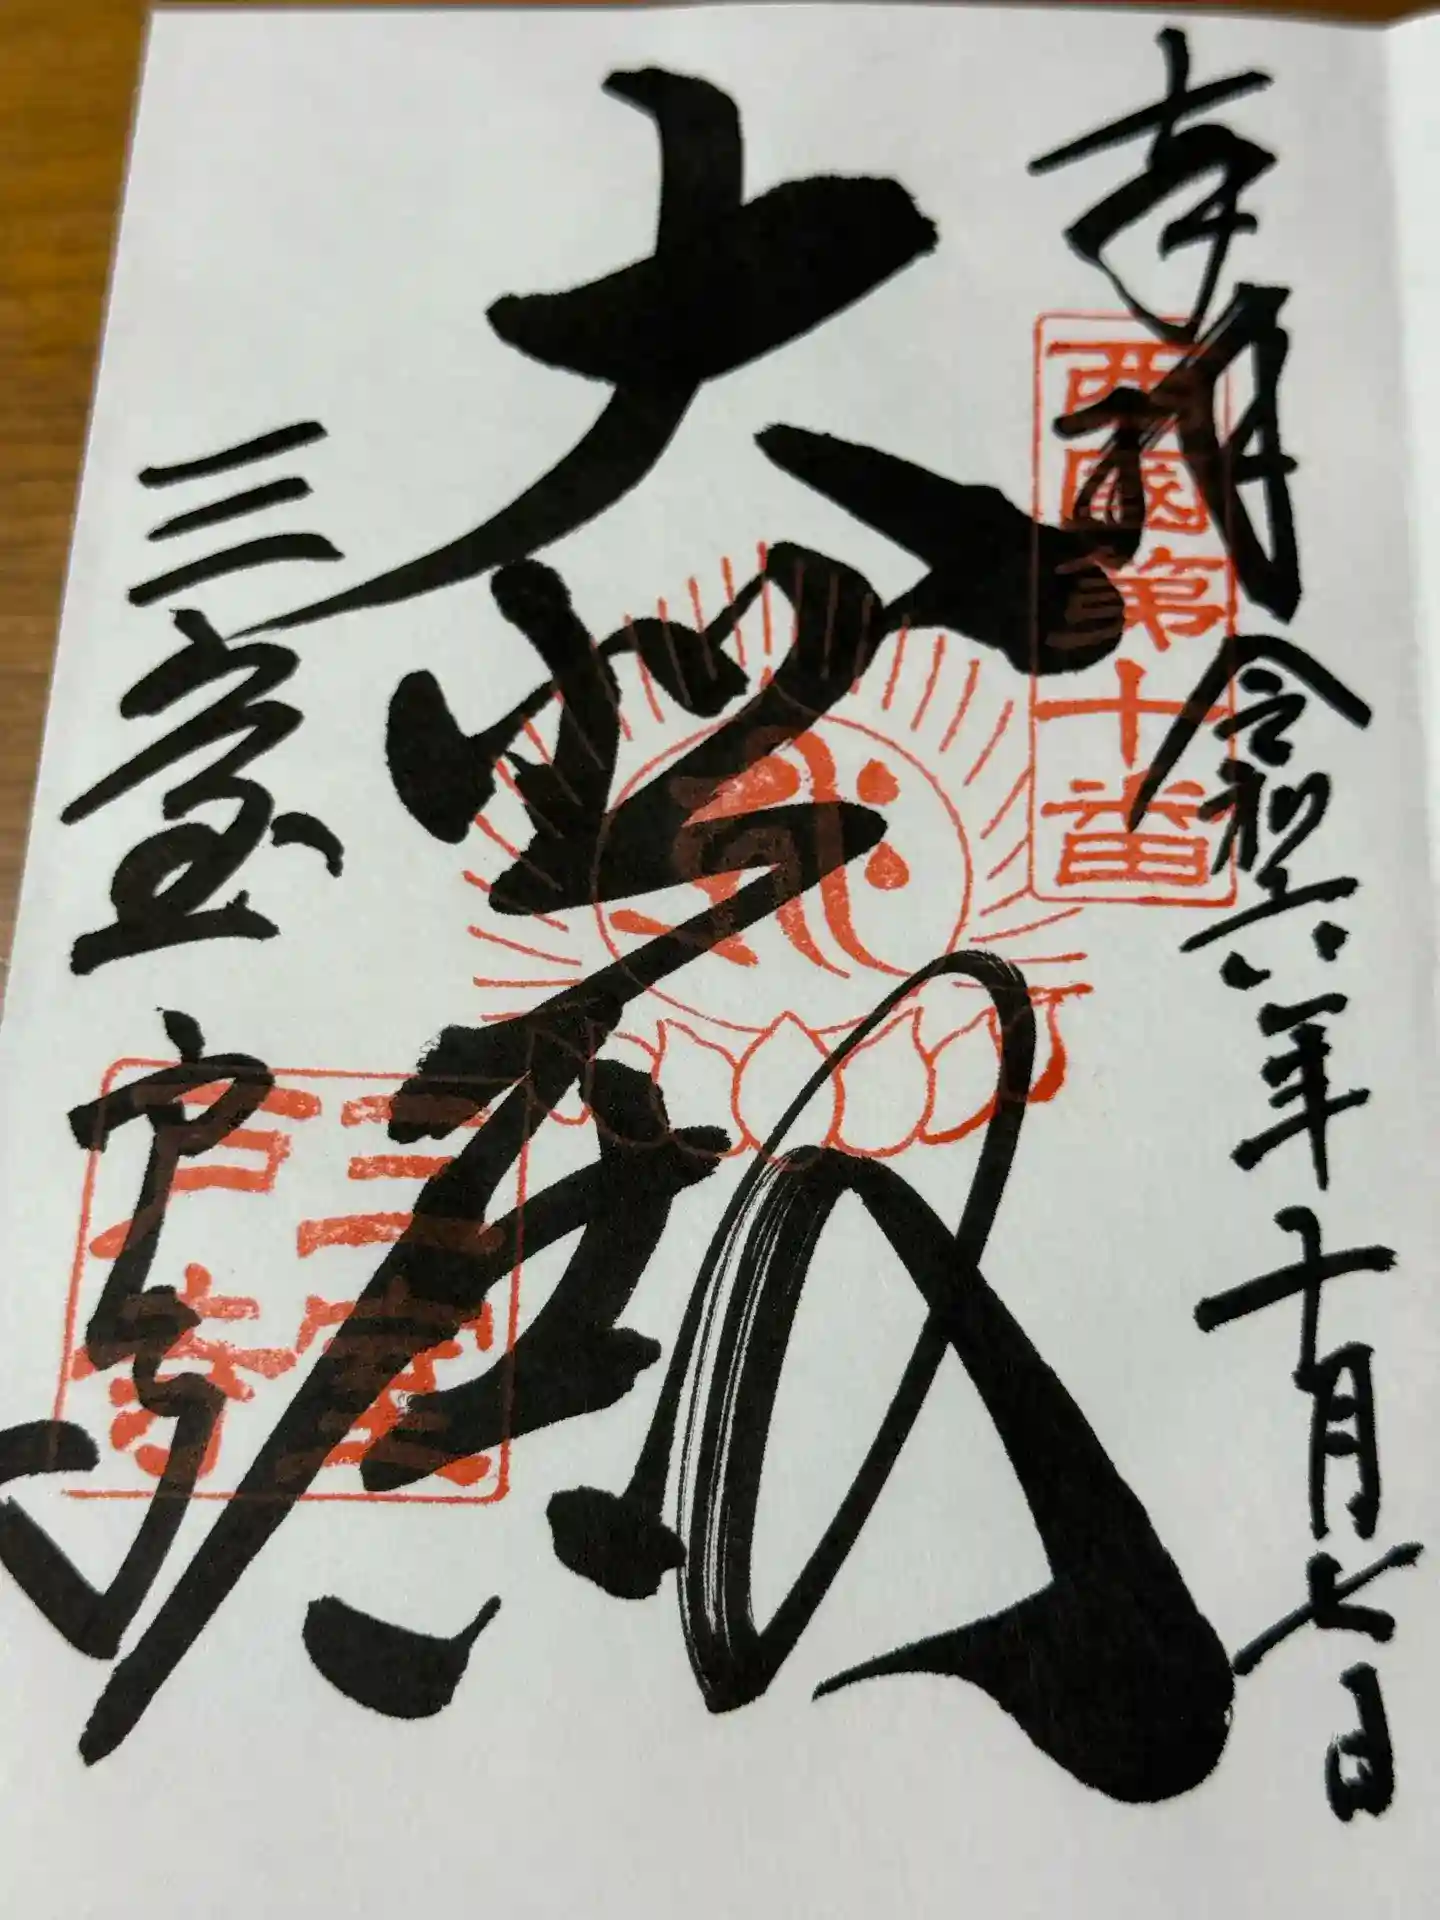 奉拝
令和六年十月七日
西國第十番
大悲殿
三室戸寺
三室
戸寺